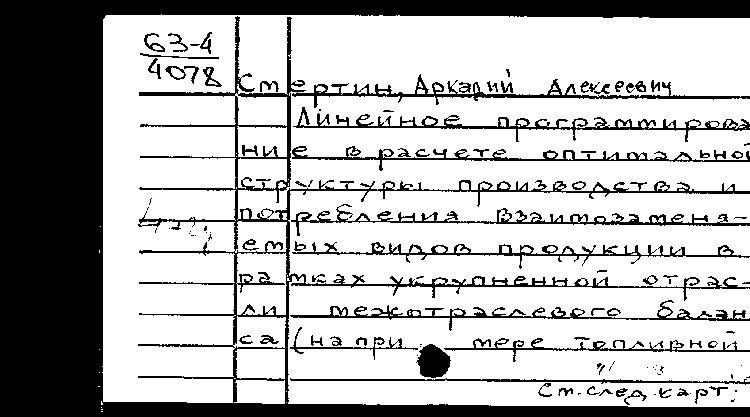 63-4
4078
Смертин, Аркадий Алексеевич
Линейное программирова
ние в расчете оптимальной
структуры производства и
потребления взаимозаменя-
емых видов продукции в
рамках укрупненной отрас-
ли межотраслевого балан
са (на при мере топливной
См. след. карт.